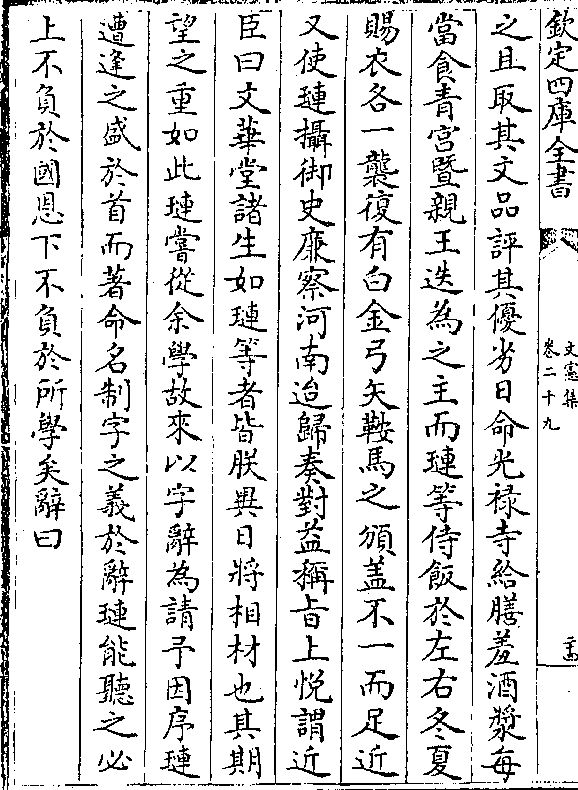 欽定四庫全書
文憲集
卷二十九
之且取其文品評其優劣日命光禄寺給膳羞酒漿每
當食青宮暨親王迭為之主而璉等侍飯於左右冬夏
賜衣各一襲復有白金弓矢鞍馬之頒盖不一而足近
又使璉攝御史㢘察河南迨歸奏對益稱旨上悦謂近
臣曰文華堂諸生如璉等者皆朕異日將相材也其期
望之重如此璉嘗從余學故來以字辭為請予因序璉
遭逢之盛於首而著命名制字之義於辭璉能聽之必
上不負於國恩下不負於所學矣辭曰